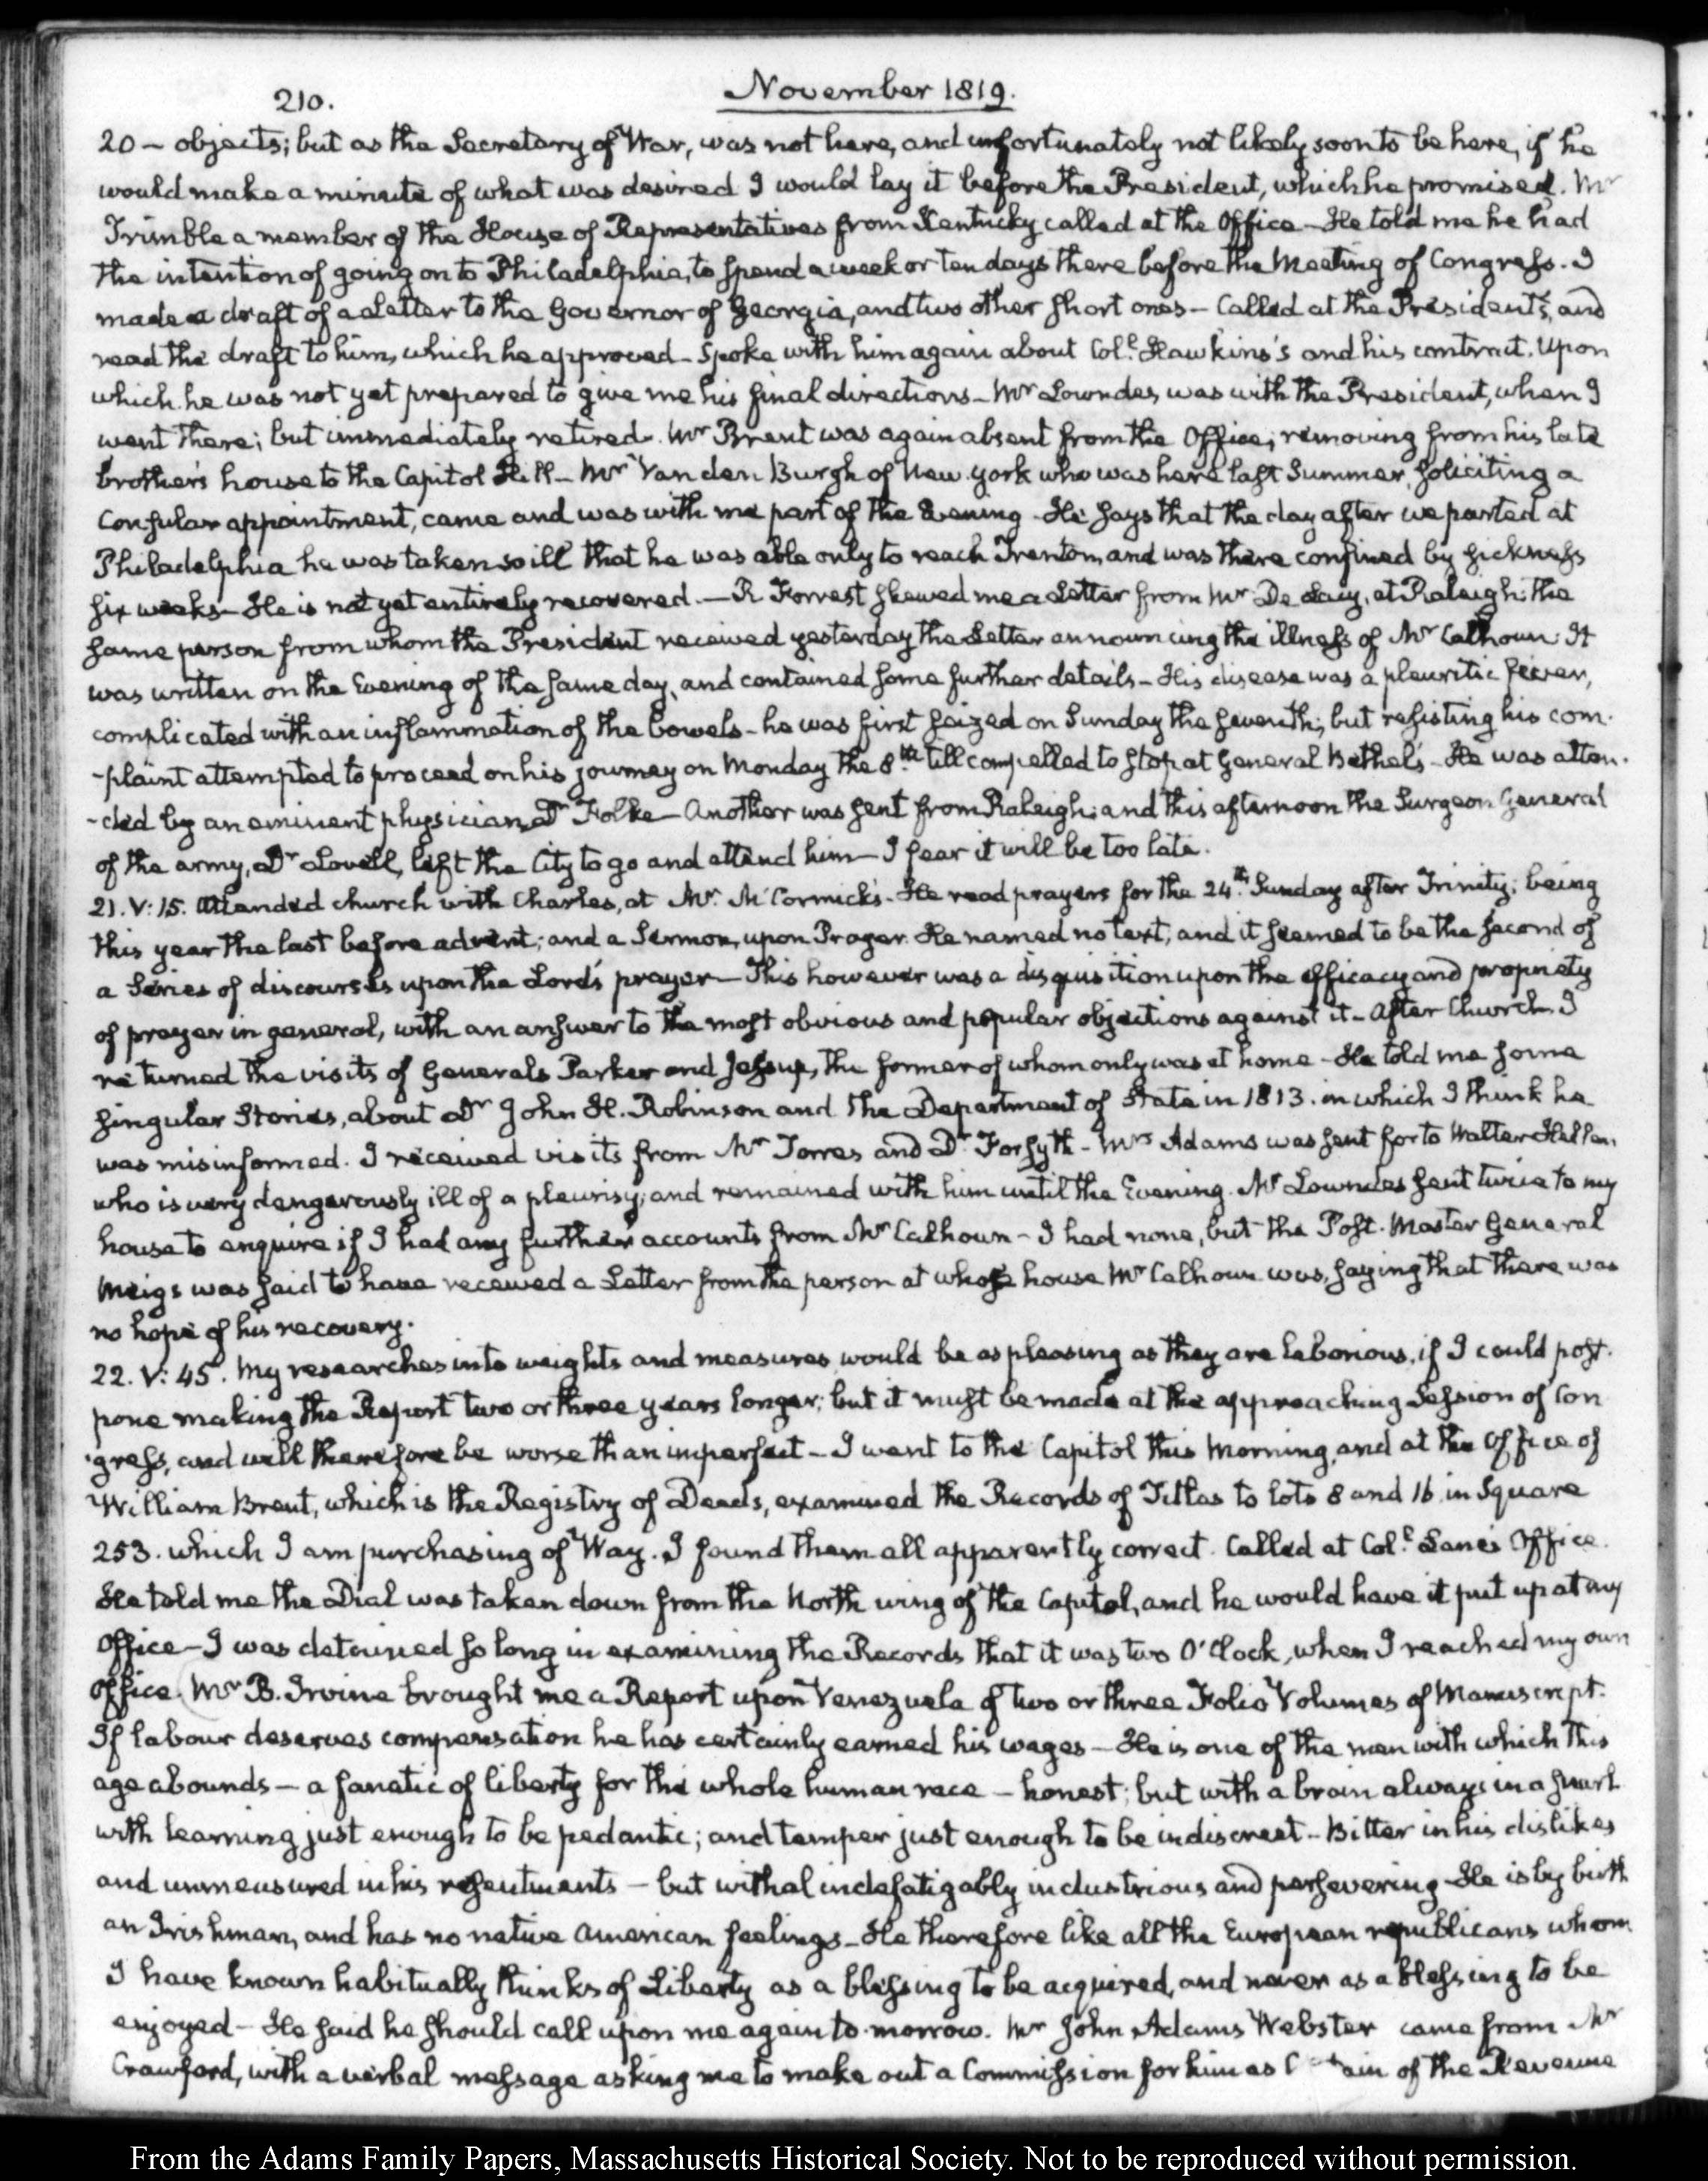 210.
November 1819.
20 – objects; but as the Secretary of War, was not here, and unfortunately not likely soon to be here, if he
would make a minute of what was desired I would lay it before the President, which he promised. Mr
Trimble a member of the House of Representatives from Kentucky called at the Office – He told me he had
the intention of going on to Philadelphia, to spend a week or ten days there before the Meeting of Congress. I
made a draft of a Letter to the Governor of Georgia, and two other short ones – Called at the President's, and
read the draft to him, which he approved – Spoke with him again about Coll. Hawkins's and his contract. Upon
which he was not yet prepared to give me his final directions – Mr Lowndes was with the President, when I
went there; but immediately retired. Mr Brent was again absent from the Office; removing from his late
brother's house to the Capitol Hill – Mr Vanden Burgh of New York who was here last Summer, soliciting a
Consular appointment, came and was with me part of the Evening – He says that the day after we parted at
Philadelphia he was taken so ill that he was able only to reach Trenton, and was there confined by sickness
six weeks – He is not yet entirely recovered. – R Forrest shewed me a Letter from Mr De Lacy, at Raleigh: the
same person from whom the President received yesterday the Letter announcing the illness of Mr Calhoun. It
was written on the Evening of the same day, and contained some further details – His disease was a pleuritic fever,
complicated with an inflammation of the bowels – he was first seized on Sunday the seventh; but resisting his com-
-plaint attempted to proceed on his journey on Monday the 8th. till compelled to stop at General Bethel's – He was atten-
-ded by an eminent physician, Dr Folke – Another was sent from Raleigh; and this afternoon the Surgeon General
of the army, Dr Lovell, left the City to go and attend him – I fear it will be too late.
21. V: 15. Attended church with Charles, at Mr. McCormick's. He read prayers for the 24th. Sunday after Trinity; being
this year the last before advent; and a Sermon, upon Prayer. He named no text, and it seemed to be the second of
a Series of discourses upon the Lord's prayer – This however was a disquisition upon the efficacy and propriety
of prayer in general, with an answer to the most obvious and popular objections against it – After Church I
returned the visits of Generals Parker and Jessup, the former of whom only was at home – He told me some
singular Stories, about Dr John H. Robinson and the Department of State in 1813. in which I think he
was misinformed. I received visits from Mr Torres and Dr. Forsyth – Mrs Adams was sent for to Walter Hellen,
who is very dangerously ill of a pleurisy; and remained with him until the Evening. Mr Lowndes sent twice to my
house to enquire if I had any further accounts from Mr Calhoun – I had none, but the Post-Master General
Meigs was said to have received a Letter from the person at whose house Mr Calhoun was, saying that there was
no hope of his recovery.
22. V: 45. My researches into weights and measures, would be as pleasing as they are laborious, if I could post-
pone making the Report two or three years longer; but it must be made at the approaching Session of Con-
-gress, and will therefore be worse than imperfect – I went to the Capitol this Morning, and at the Office of
William Brent, which is the Registry of Deeds, examined the Records of Titles to lots 8 and 16 in Square
253. which I am purchasing of Way. I found them all apparently correct. Called at Coll. Lane's Office.
He told me the Dial was taken down from the North wing of the Capitol, and he would have it put up at my
Office – I was detained so long in examining the Records that it was two O'Clock, when I reached my own
Office. Mr B. Irvine brought me a Report upon Venezuela of two or three Folio Volumes of Manuscript.
If labour deserves compensation he has certainly earned his wages – He is one of the men with which this
age abounds – a fanatic of liberty for the whole human race – honest; but with a brain always in a snarl
with learning just enough to be pedantic; and temper just enough to be indiscreet – Bitter in his dislikes
and unmeasured in his resentments – but withal indefatigably industrious and persevering – He is by birth
an Irishman, and has no native American feelings – He therefore like all the European republicans whom
I have known habitually thinks of Liberty as a blessing to be acquired, and never as a blessing to be
enjoyed – He said he should call upon me again to-morrow. Mr John Adams Webster came from Mr
Crawford, with a verbal message asking me to make out a Commission for him as of the Revenue
From the Adams Family Papers, Massachusetts Historical Society. Not to be reproduced without permission.